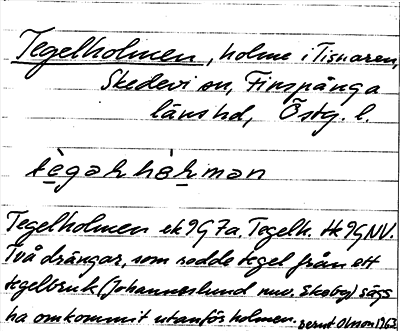 Tegelholmen, holme i Tisnaren,
Skedevi sn, Finspånga
läns hd, Östg. l.
Tegelholmen ek 9G 7a. Tegelh. tk 9G NV.
Två drängar, som rodde tegel från ett
tegelbruk (Johanneslund nuv. Skoby) sägs
ha omkommit utanför holmen. Bernt Olsson 1963